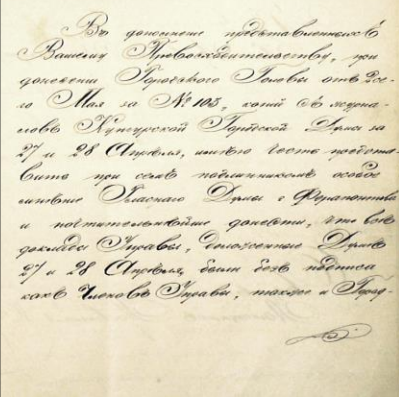 Въ дополненіе представленныхъ
Вашему Превосходительству, при
донесеніи Городскаго Головы отъ 2 се-
го Мая за № 103, копій съ журна-
ловъ Кунгурской Городской Думы за
27 и 28 Апрѣля, имѣю честь предста-
вить при семъ подлинникомъ особое
мнѣніе Гласнаго Думы г. Ферапонтова
и почтительнѣйше донести, что всѣ
доклады Управы, доложенные Думѣ
27 и 28 Апрѣля, были безъ подписа
какъ Членовъ Управы, также и Город-